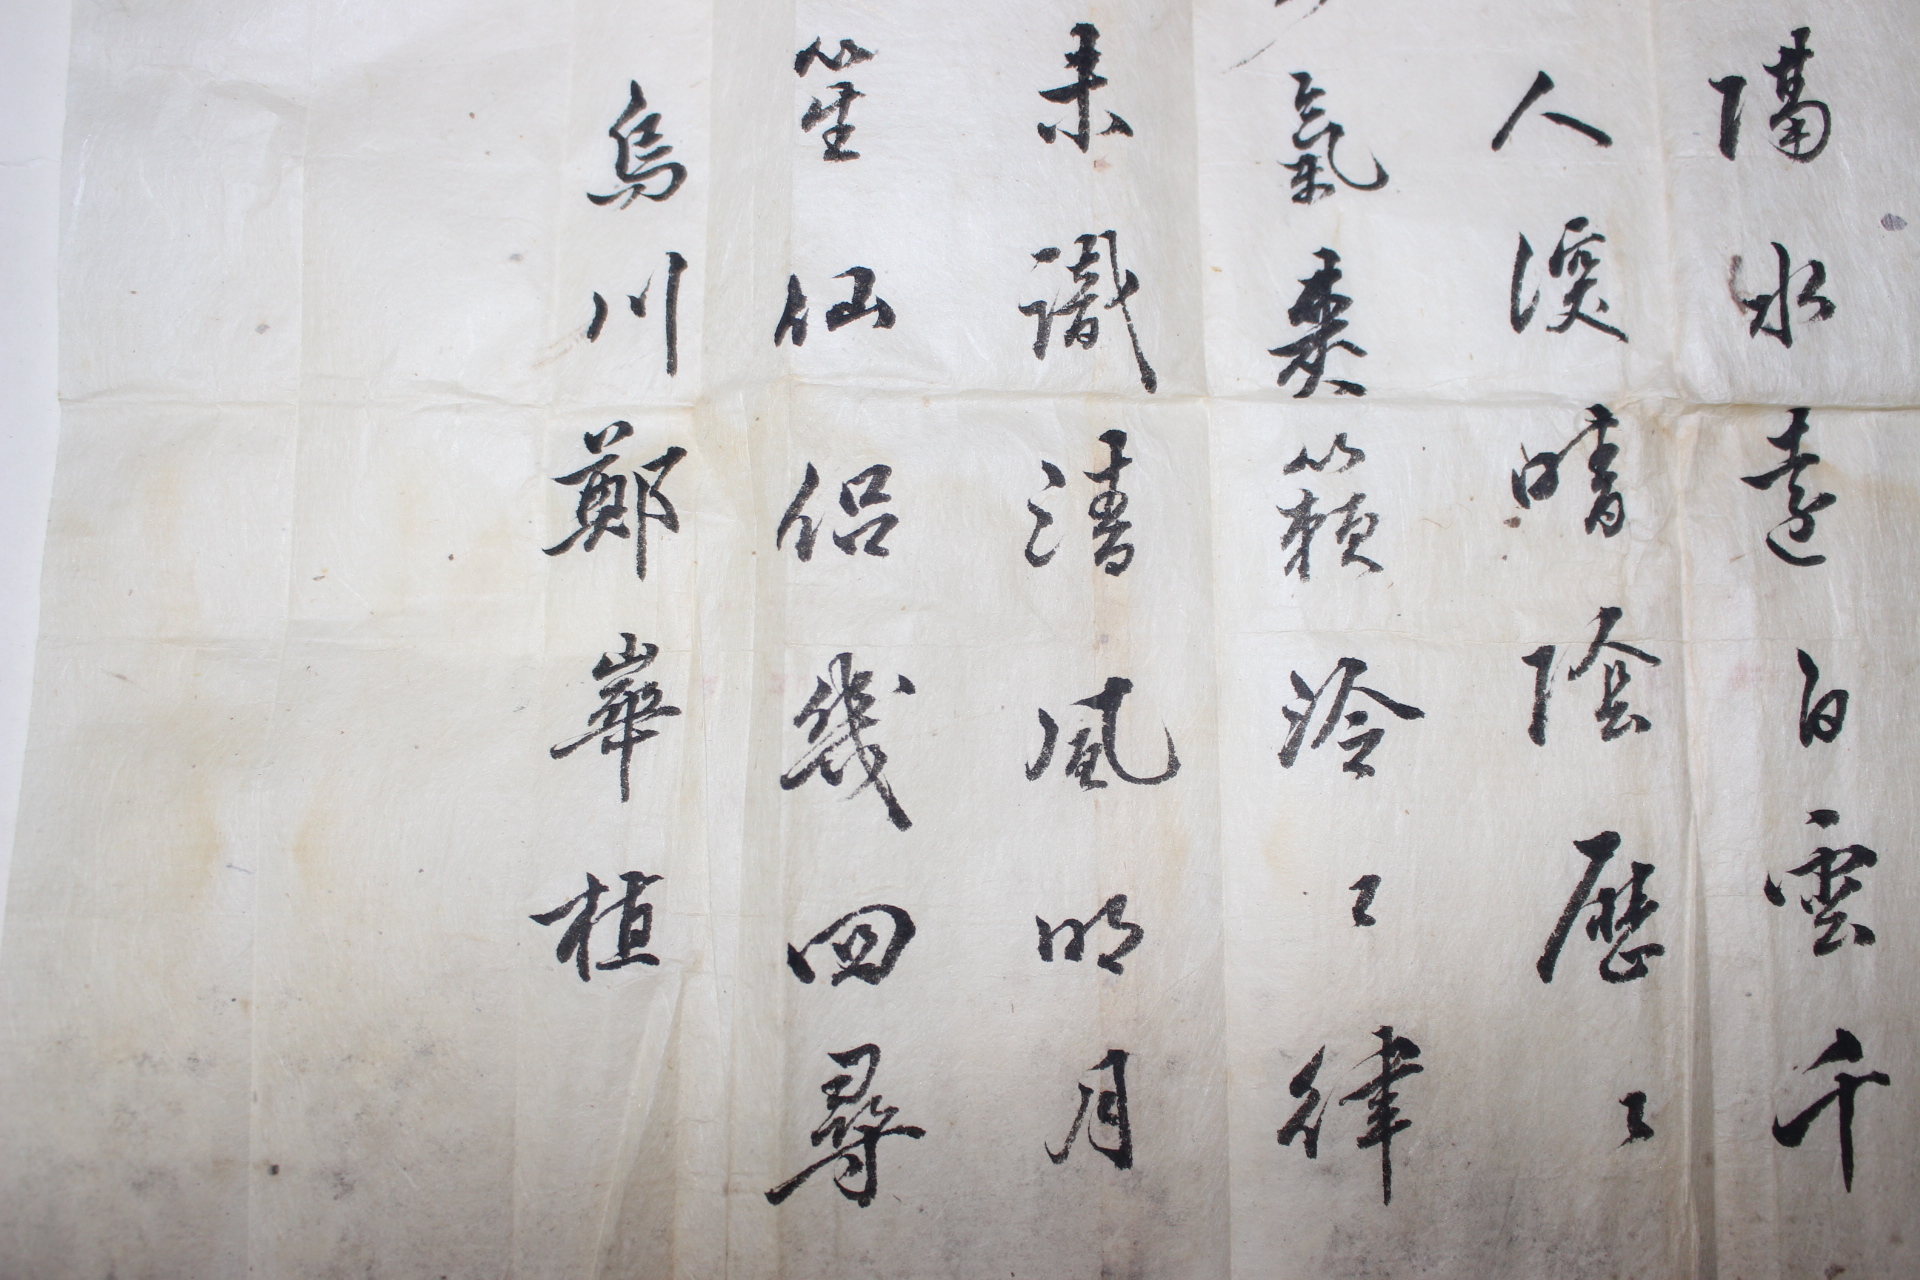 隔水遠白雲千
人溪晴陰歷〻
氣籟泠〻律
未識清風明月
笙仙侶幾回尋
烏川鄭崋植